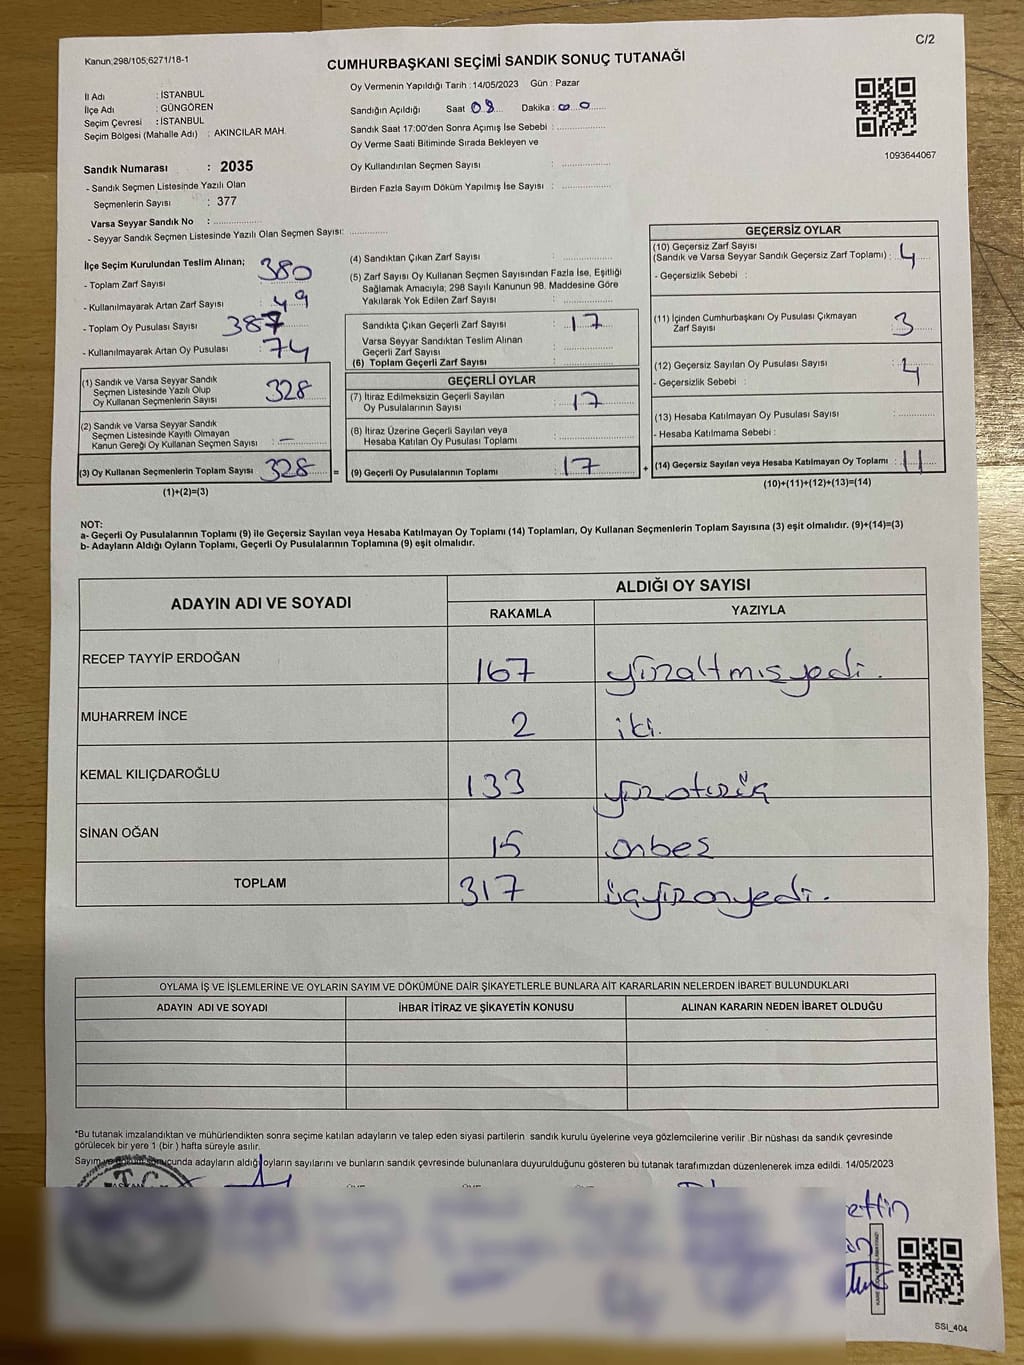 C/2
Kanun;298/105;6271/18-1
CUMHURBAŞKANI SEÇİMİ SANDIK SONUÇ TUTANAĞI
İl Adı : İSTANBUL
İlçe Adı : GÜNGÖREN
Seçim Çevresi : İSTANBUL
Seçim Bölgesi (Mahalle Adı) : AKINCILAR MAH.
Sandık Numarası : 2035
- Sandık Seçmen Listesinde Yazılı Olan
Seçmenlerin Sayısı : 377
Varsa Seyyar Sandık No : ..................
- Seyyar Sandık Seçmen Listesinde Yazılı Olan Seçmen Sayısı: ..............
Oy Vermenin Yapıldığı Tarih : 14/05/2023 Gün : Pazar
Sandığın Açıldığı Saat 08 Dakika : 00
Sandık Saat 17:00'den Sonra Açımış İse Sebebi : ..................
Oy Verme Saati Bitiminde Sırada Bekleyen ve
Oy Kullandırılan Seçmen Sayısı : ..................
Birden Fazla Sayım Döküm Yapılmış İse Sayısı : ..................
1093644067
İlçe Seçim Kurulundan Teslim Alınan;
- Toplam Zarf Sayısı : 380
- Kullanılmayarak Artan Zarf Sayısı : 49
- Toplam Oy Pusulası Sayısı 387
- Kullanılmayarak Artan Oy Pusulası : 74
(1) Sandık ve Varsa Seyyar Sandık
Seçmen Listesinde Yazılı Olup
Oy Kullanan Seçmenlerin Sayısı 328
(2) Sandık ve Varsa Seyyar Sandık
Seçmen Listesinde Kayıtlı Olmayan
Kanun Gereği Oy Kullanan Seçmen Sayısı : -
(3) Oy Kullanan Seçmenlerin Toplam Sayısı 328 =
(1)+(2)=(3)
(4) Sandıktan Çıkan Zarf Sayısı : ..................
(5) Zarf Sayısı Oy Kullanan Seçmen Sayısından Fazla İse, Eşitliği
Sağlamak Amacıyla; 298 Sayılı Kanunun 98. Maddesine Göre
Yakılarak Yok Edilen Zarf Sayısı : ..................
Sandıkta Çıkan Geçerli Zarf Sayısı : 17
Varsa Seyyar Sandıktan Teslim Alınan
Geçerli Zarf Sayısı : ..................
(6) Toplam Geçerli Zarf Sayısı : ..................
GEÇERLİ OYLAR
(7) İtiraz Edilmeksizin Geçerli Sayılan
Oy Pusulalarının Sayısı : 17
(8) İtiraz Üzerine Geçerli Sayılan veya
Hesaba Katılan Oy Pusulası Toplamı : ..................
(9) Geçerli Oy Pusulalarının Toplamı : 17 +
GEÇERSİZ OYLAR
(10) Geçersiz Zarf Sayısı
(Sandık ve Varsa Seyyar Sandık Geçersiz Zarf Toplamı) : 4
- Geçersizlik Sebebi :
(11) İçinden Cumhurbaşkanı Oy Pusulası Çıkmayan
Zarf Sayısı : 3
(12) Geçersiz Sayılan Oy Pusulası Sayısı : 4
- Geçersizlik Sebebi :
(13) Hesaba Katılmayan Oy Pusulası Sayısı : ............
- Hesaba Katılmama Sebebi :
(14) Geçersiz Sayılan veya Hesaba Katılmayan Oy Toplamı : 11
(10)+(11)+(12)+(13)=(14)
NOT:
a- Geçerli Oy Pusulalarının Toplamı (9) ile Geçersiz Sayılan veya Hesaba Katılmayan Oy Toplamı (14) Toplamları, Oy Kullanan Seçmenlerin Toplam Sayısına (3) eşit olmalıdır. (9)+(14)=(3)
b- Adayların Aldığı Oyların Toplamı, Geçerli Oy Pusulalarının Toplamına (9) eşit olmalıdır.
ADAYIN ADI VE SOYADI ALDIĞI OY SAYISI
RAKAMLA YAZIYLA
RECEP TAYYİP ERDOĞAN 167 yüzaltmışyedi.
MUHARREM İNCE 2 iki.
KEMAL KILIÇDAROĞLU 133 yüzotuzüç
SİNAN OĞAN 15 onbeş
TOPLAM 317 üçyüzonyedi.
OYLAMA İŞ VE İŞLEMLERİNE VE OYLARIN SAYIM VE DÖKÜMÜNE DAİR ŞİKAYETLERLE BUNLARA AİT KARARLARIN NELERDEN İBARET BULUNDUKLARI
ADAYIN ADI VE SOYADI İHBAR İTİRAZ VE ŞİKAYETİN KONUSU ALINAN KARARIN NEDEN İBARET OLDUĞU
*Bu tutanak imzalandıktan ve mühürlendikten sonra seçime katılan adayların ve talep eden siyasi partilerin sandık kurulu üyelerine veya gözlemcilerine verilir .Bir nüshası da sandık çevresinde
görülecek bir yere 1 (bir ) hafta süreyle asılır.
Sayım ve döküm sonucunda adayların aldığı oyların sayılarını ve bunların sandık çevresinde bulunanlara duyurulduğunu gösteren bu tutanak tarafımızdan düzenlenerek imza edildi. 14/05/2023
T.C.
ettin
SSI_404